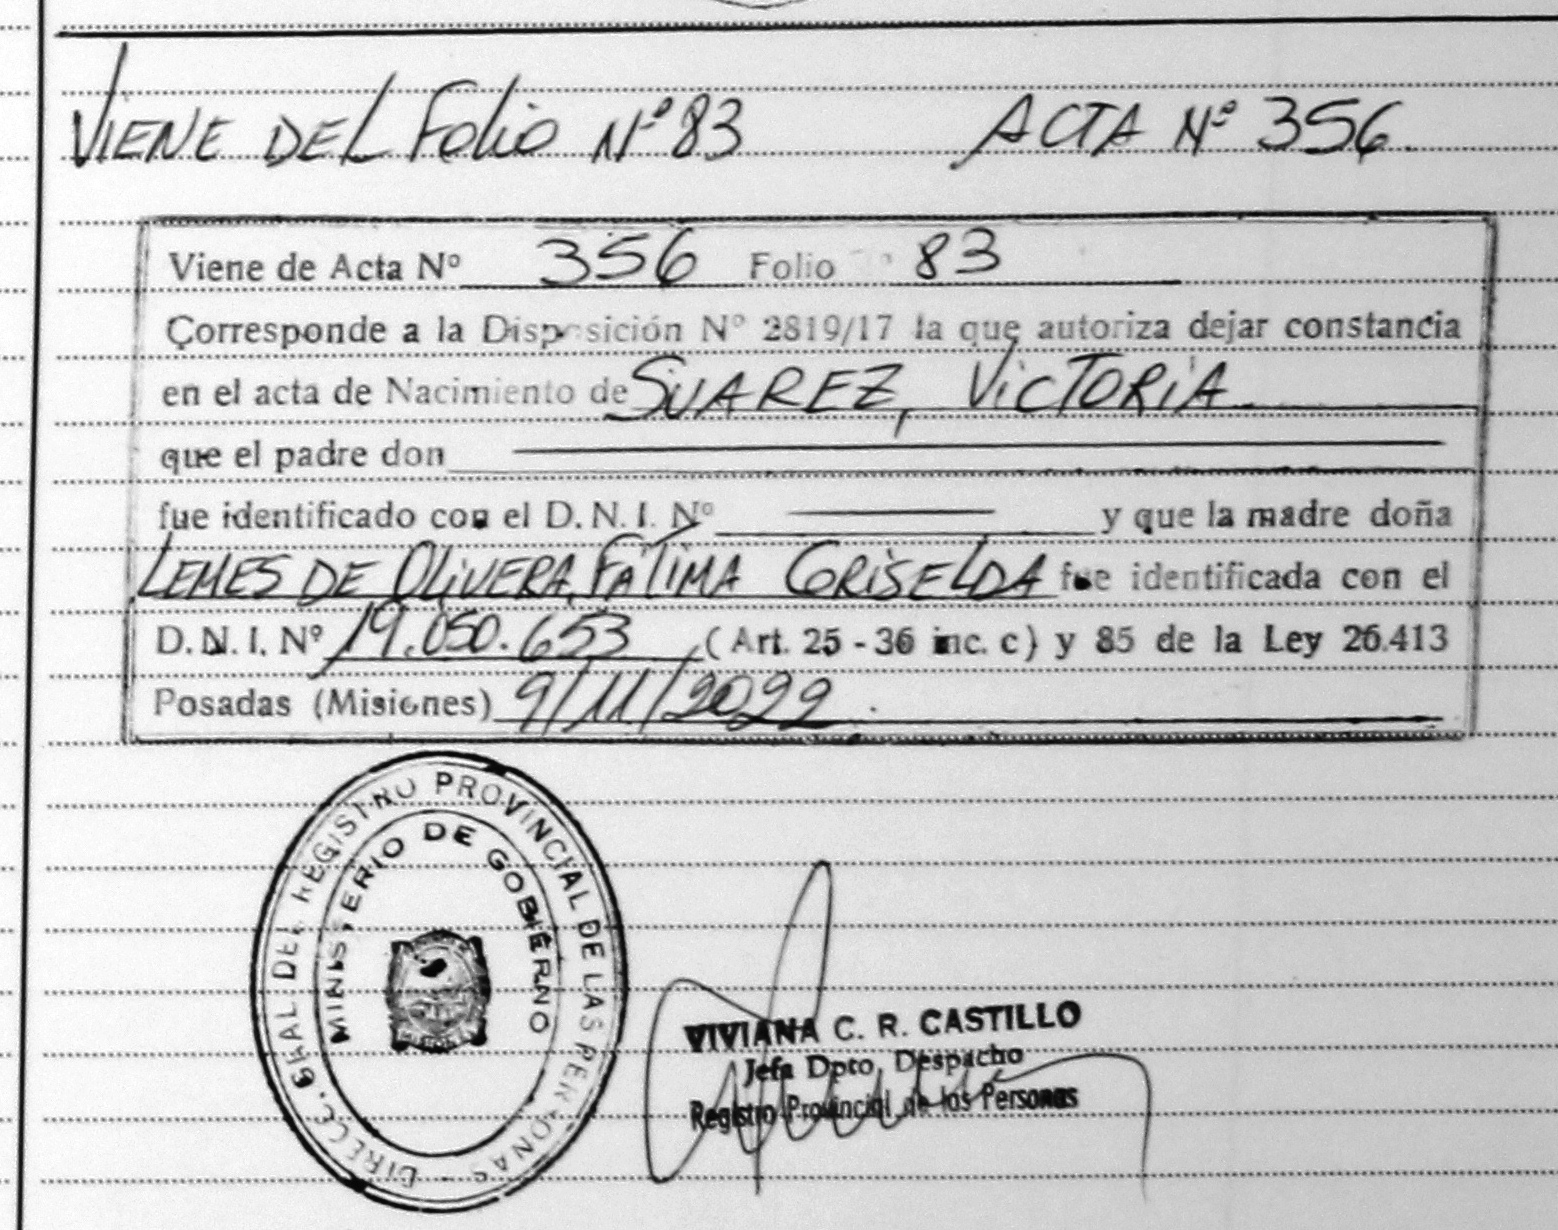 VIENE DEL Folio Nº 83 ACTA Nº 356.
Viene de Acta Nº 356 Folio Nº 83
Corresponde a la Disposición Nº 2819/17 la que autoriza dejar constancia
en el acta de Nacimiento de SUAREZ, VICTORIA
que el padre don
fue identificado con el D. N. I. Nº y que la madre doña
LEMES DE OLIVERA, FÁTIMA GRISELDA fue identificada con el
D. N. I. Nº 19.050.653 (Art. 25 - 36 inc. c) y 85 de la Ley 26.413
Posadas (Misiones) 9/11/2022.
DIRECC. GRAL DEL REGISTRO PROVINCIAL DE LAS PERSONAS -
MINISTERIO DE GOBIERNO
VIVIANA C. R. CASTILLO
Jefa Dpto. Despacho
Registro Provincial de los Personas